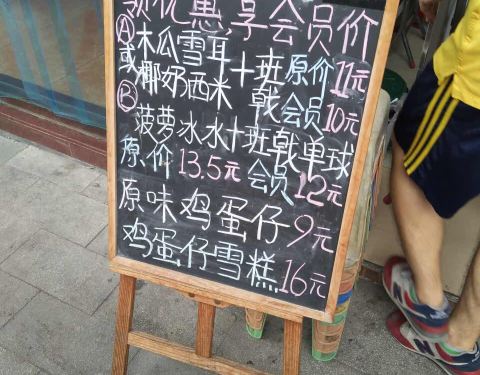 领优惠,享会员价
Ⓐ木瓜雪耳十班 原价11元
或椰奶西米 戟 会员10元
Ⓑ菠萝冰水十班戟单球
原价13.5元 会员12元
原味鸡蛋仔9元
鸡蛋仔雪糕16元